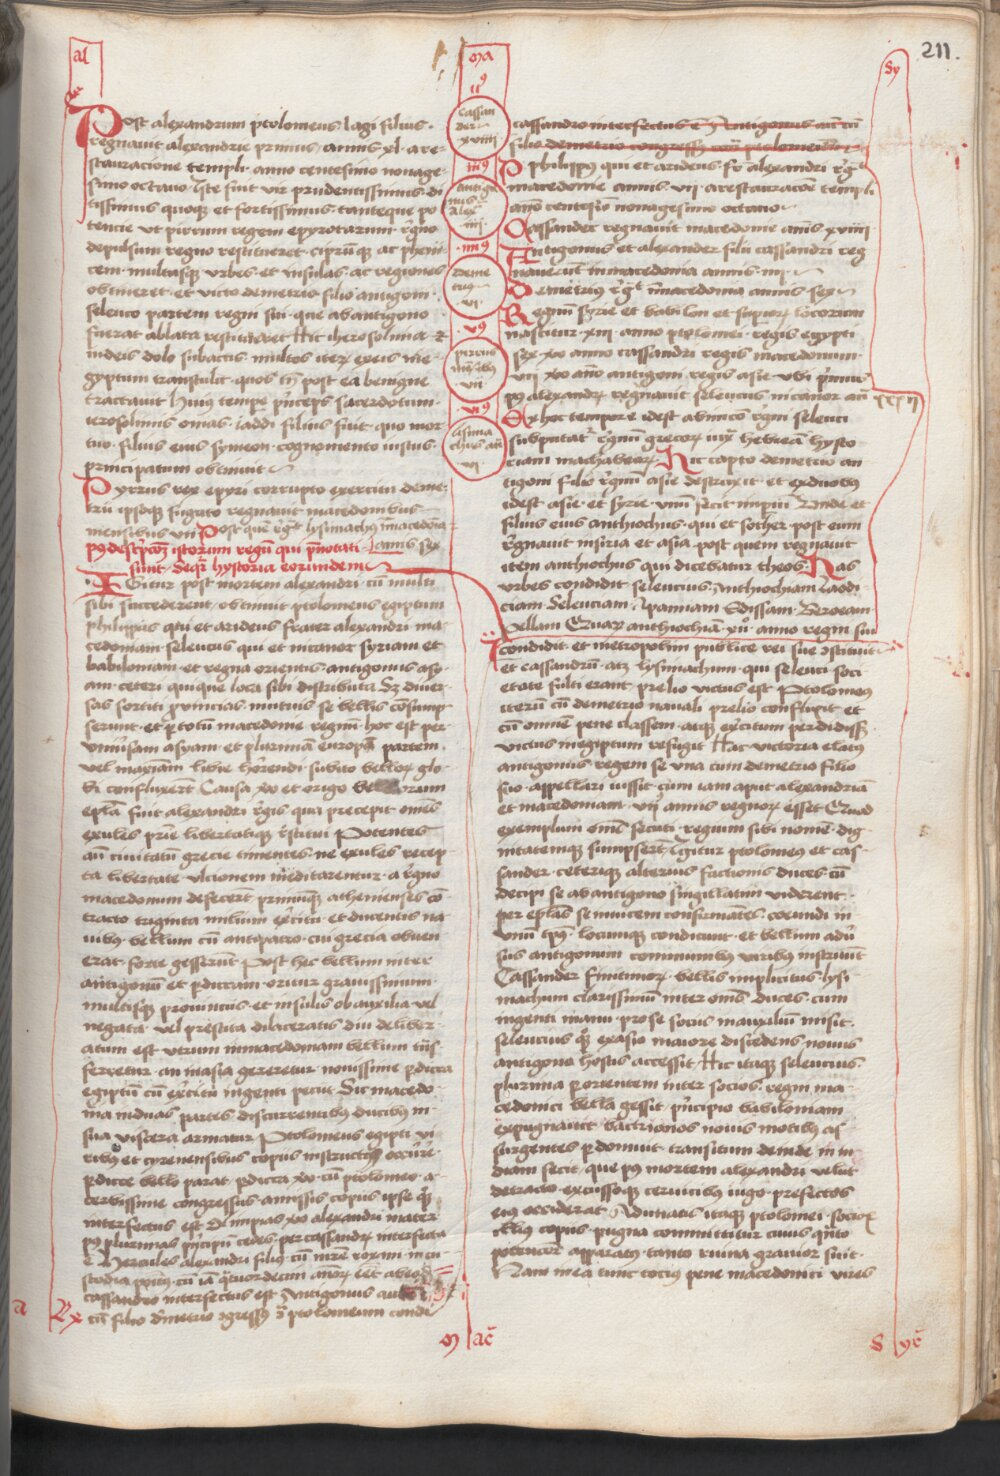 211.
al
Post alexandrum ptolomeus lagi filius.
regnauit alexandrie primus annis xl. a re-
stauracione templi. anno centesimo nonage
simo octauo. iste fuit vir prudentissimus. di
tissimus quoqȝ et fortissimus. tanteque po
tencie ut pirrum regem epyrotarum. rēgno
depulsum regno restitueret. ciprūqȝ ac pheni
cem. multasqȝ vrbes. et insulas. ac regiones
obtineret. et victo demetrio filio antigoni.
seleuco partem regni sui. que ab antigono
fuerat ablata restitueret. Hic iherosolima et
iudeis dolo subactis. multos iterȝ ex eis in e
gyptum transtulit. quos tn̄ post ea benigne
tractauit. huius tempe p̄nceps sacerdotum.
ierosolimis onias. iaddi filius fuit. quo mor
tuo. filius eius symeon. cognomento iustus.
principatum obtinuit
Pyrrus rex epyri corrupto exercitu deme-
trii ipsoqȝ fugato regnauit macedonibus
mensibus vii. Post quē rēgt lysimachus ī macedonia
annis sex
pꝯ descripcōȝ istorum regū qui p̄notati
sunt. seqr hystoria eorundem
Igitur post mortem alexandri cū multi
sibi succederent. obtinuit ptolomeus egiptum
philippus qui et arideus frater alexandri ma-
cedoniam. seleucus qui et nicanor syriam et
babiloniam. et regna orientis. antigonus asy-
am. ceteri quique loca sibi distributa. Sȝ diuer-
sas sortiti prouincias. mutuis se bellis cōsump
serunt. et p totū macedonie regnū. hoc est per
vniuersam asyam. et plurimā europe partem.
vel maximam libie horrendi subito bellorȝ glo-
bi confluxert. Causa xo et origo bellorum
epl̄a fuit alexandri regis qua precepit omēs
exules prie libertatiqȝ restitui. Potentes
aū ciuitatū grecie timentes. ne exules recep-
ta libertate. vlcionem meditarentur. a regno
macedonum defecert. primiqȝ athenienses cō-
tracto triginta milium exercitu. et ducentis na-
uibȝ. bellum cū antipatro. cui grecia obuen
erat. forte gesserunt. Post hec bellum inter
antigonū et perdiccam oritur grauissimum.
multisqȝ prouinciis. et insulis ob auxilia vel
negata. vel prestita dilaceratis. diu deliber-
atum est utrum in macedoniam bellum trās-
ferretur. an in asia gereretur. nouissime pdicca
egiptū cū exercitu ingenti petiit. Sic macedo-
nia in duas partes discurrentibȝ ducibȝ in
sua viscera armatur. Ptolomeus egipti vi
ribȝ et cyrenensibus copiis instructus occūre
pdicce bello parat. pdicca xo cū ptolomeo a-
cerbissime congressus. amissis copiis ipse qȝ
interfectus est. Olimpias xo alexandri mater
pꝯ plurimas p̄ncipū cedes. per cassandrȝ interfecta
e. Hercules alexandri filius cū mr̄e roxani in cu-
stodia positus cū iā quatuordecim annorȝ eēt. ab eodem
cassandro interfectus est. Antigonus
cū filio demetrio ɔgressȝ ɔ ptolomeum condi
a
Rx
ma
Cassan
der
xviiii
iii9
antigo
nus
Alexr
iiii
iiii9
deme
trius
vi
v9
pirrus
mēsibȝ
vii
vi9
lisima
chus an
vi
m ac̄
sy
cassandro interfectus ē. Antigonus aut cū
filio demetrio congressȝ cont ptolomeum
Philippus qui et arideus. fr̄ alexandri rēgt
macedonie annis. vii. a restauracōe templi
anō centesīo nonagesimo octauo
Cassander regnauit macedonie anīs xviiii
Antigonus et alexander filii cassandri reg
nauerūt in macedonia annis. iiii.
Demetrius rēgt ī macedonia annis sex
Regnū syrie et babilon et supiorȝ locorum
nascitur. xiii. anno ptolomei. regis egypti
sex xo anno cassandri regis macedonum.
vii xo anō antigoni. regis asie. vbi primus
pꝯ alexandrȝ regnauit seleucus nicanor an
xxxii
Ex hoc tempore idest ab inicio rēgni seleuci
supputatr rēgnū grecorȝ iuxta hebreā hysto
riam machabeorȝ. Hic capto demetrio an
tigoni filio rēgnū asie destruxit. et ex duobus
idest asie. et syrie. vnū fecit impiū. Unde et
filius eius anthiochus. qui et sother. post eum
rēgnauit in siria et asia. post quem regnauit
item anthiochus qui dicebatur theos. Has
vrbes condidit seleucus. Anthiochiam. laodi
ciam. Seleuciam. Apamiam. Edissam. Beroeam.
Pellam. Quarȝ anthiochiā. xii. anno regni sui
condidit. et metropolim publice rei sue ɔstituit
et cassandrū. atȝ lysimachum. qui seleuci soci
etate fulti erant. prelio victus est. Ptolomeȝ
iterū cū demetrio nauali prelio conflixit. et
cū omnē pene classem. atqȝ exercitum perdidissȝ
victus in egiptum refugit. Hac victoria elatȝ
antigonus regem se vna cum demetrio filio
suo appellari iussit. cum iam aput alexandriā
et macedoniam. viii. annis regnorȝ esset. Quod
exemplum omēs secuti. regium sibi nomē. dig-
nitatemqȝ sumpsert. Igitur ptolomeȝ et cas-
sander. ceteriqȝ alterius factionis duces. cū
decipi se ab antigono singillatim viderent.
per eplās se inuicem confirmātes. coeundi in
vnū tpȝ. locumqȝ condicunt. et bellum adū
sus antigonum communibȝ viribȝ instruūt
Cassander finitimorȝ. bellis implicitus. lysi-
machum clarissimū inter omēs duces. cum
ingenti manu. pro se sociis in auxiliū misit.
seleucus qȝ ex asia maiore discedens. nouus
antigono hostis accessit. Hic itaqȝ seleucus
plurima p orientem inter socios. regni ma
cedonici bella gessit. principio babiloniam
expugnauit. bactrianos nouis motibȝ as
surgentes pdomuit. transitum deinde in in
diam fecit. que pꝯ mortem alexandri. velut
detracto. excussoqȝ ceruicibȝ iugo. prefectos
eiȝ occiderat. Adunatis itaqȝ ptolomei. sociorȝ
illiȝ copiis. pugna committitur. cuius qnto
potencior apparatȝ. tanto ruina grauior fuit.
Nam in ea tunc tocius pene macedonici vires
s yr̄